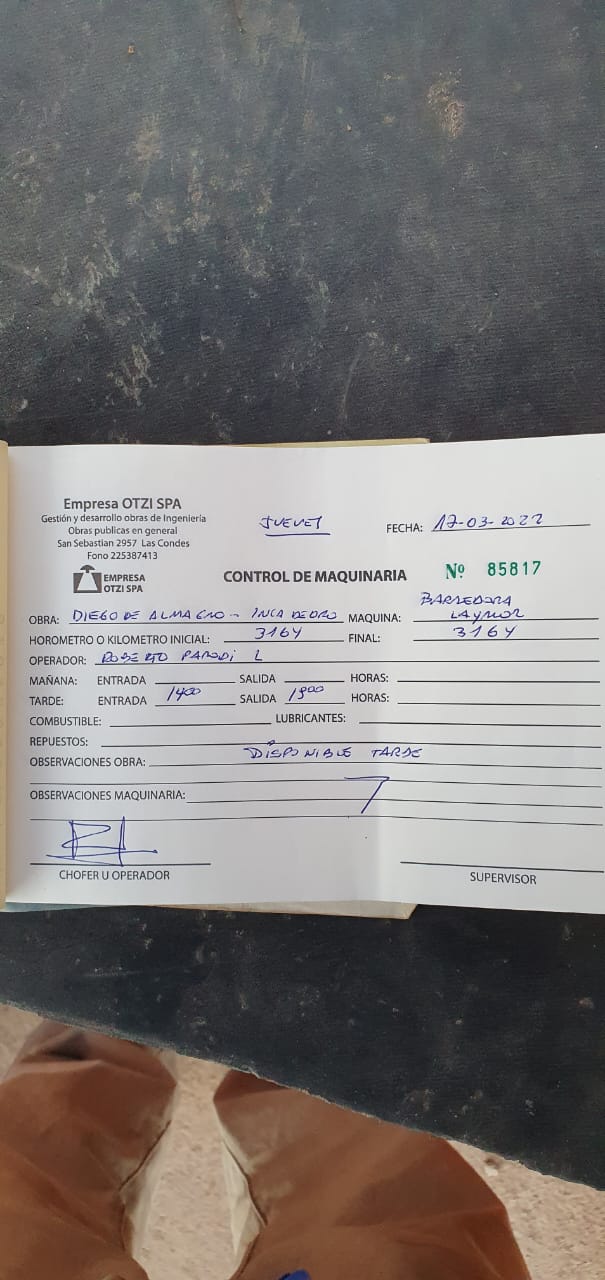 Empresa OTZI SPA
Gestión y desarrollo obras de Ingenieria
Obras publicas en general
San Sebastian 2957 Las Condes
Fono 225387413
JUEVES
FECHA: 17-03-2022
EMPRESA
OTZI SPA
CONTROL DE MAQUINARIA
Nº 85817
OBRA: DIEGO DE ALMAGRO - INCA DE ORO MAQUINA: BARREDORA
LAYMOR
HOROMETRO O KILOMETRO INICIAL: 3164 FINAL: 3164
OPERADOR: ROBERTO PARODI L
MAÑANA: ENTRADA SALIDA HORAS:
TARDE: ENTRADA 1400 SALIDA 1900 HORAS:
COMBUSTIBLE: LUBRICANTES:
REPUESTOS:
OBSERVACIONES OBRA: DISPONIBLE TARDE
OBSERVACIONES MAQUINARIA:
CHOFER U OPERADOR
SUPERVISOR